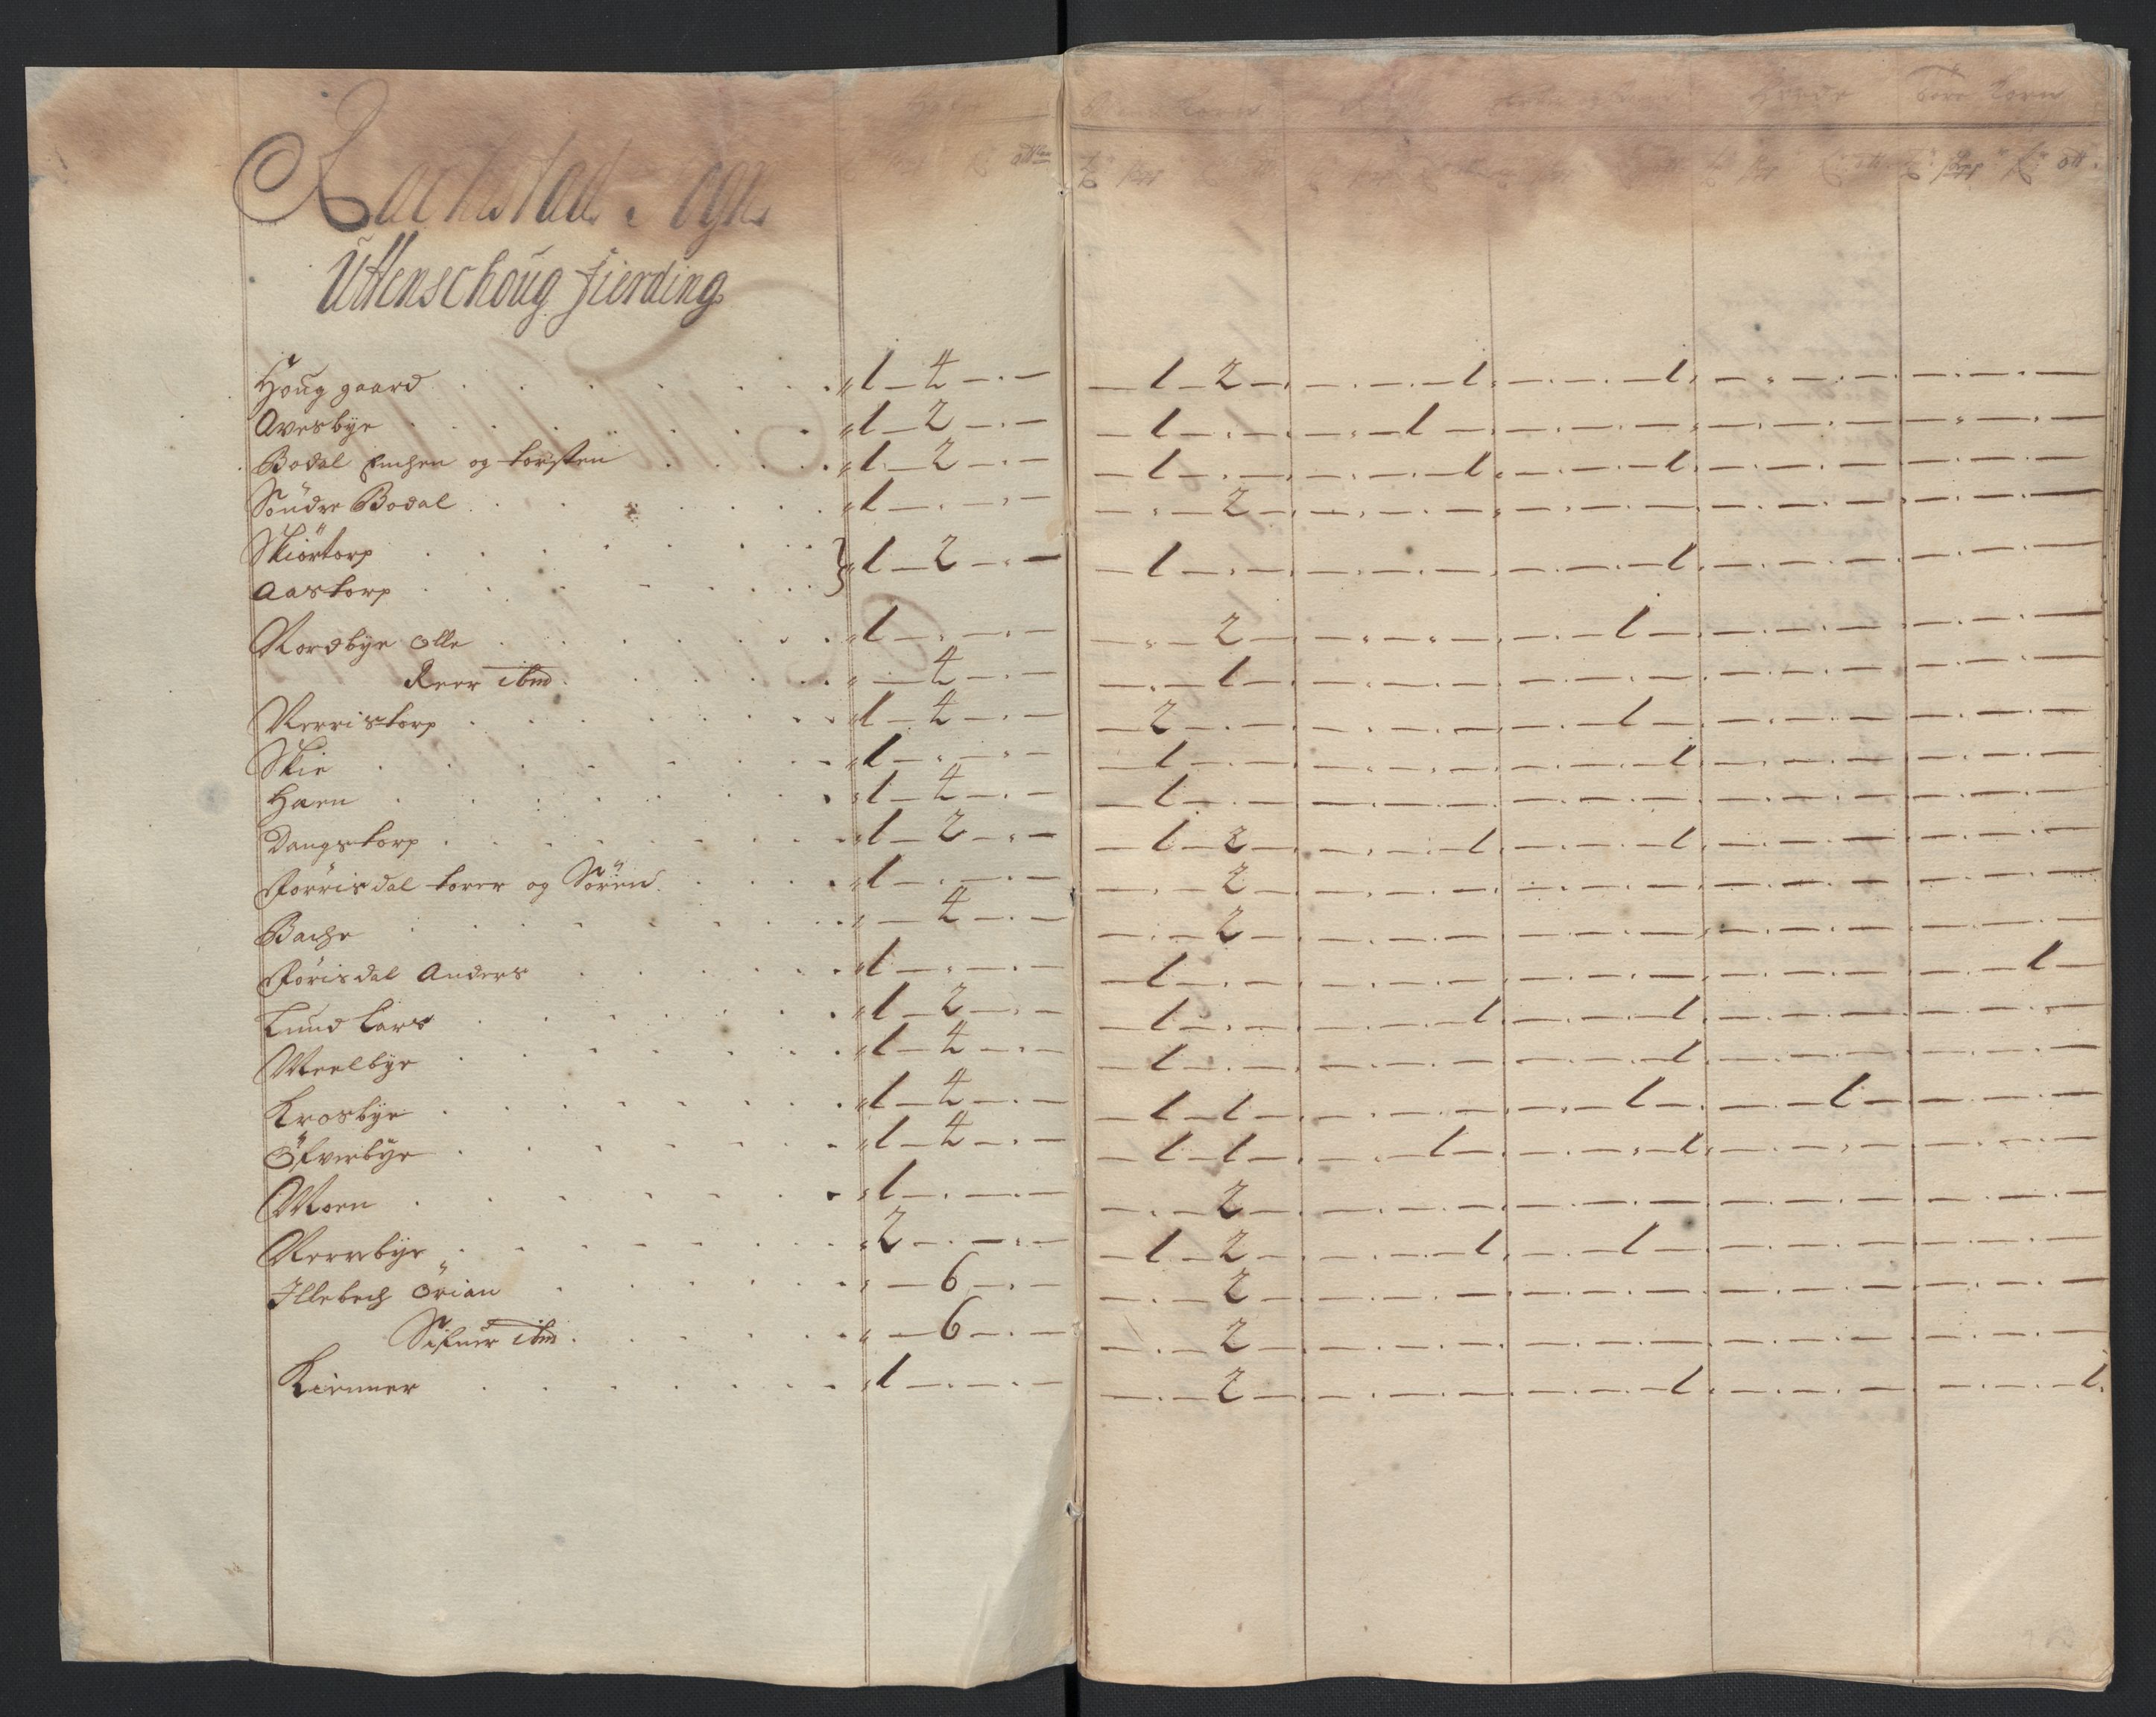 Rachestad Sogn
Uttenschoug fierding
Houg gaard . . . . . . . " 1 — 4 — . — — 1 — 2 — . — . — . 1 . — . — . 1 . — . — . — — . — . —
Avesbye . . . . . . " 1 — 2 — . — — 1 — . — . — . 1 — . — . — . — . — . — . — — . — . —
Bodal Enchen og torsten . . . " 1 — 2 — . — — 1 — . — . — . — . 1 . — . — . 1 . — . — . — — . — . —
Söndre Bodal . . . . . " 1 — . — . — — . — 2 — . — . — . — . — . — . — . — . — . — — . — . —
Skiörtorp . . . . . } " 1 — 2 — . — — 1 — . — . — . — . — . — . — . 1 . — . — . — — . — . —
Aastorp . . . . .
Nordbye Olle . . . . . " 1 — . — . — — . — 2 — . — . — . — . — . 1 — . — . — . — — . — . —
Peer ibm . . . . . " — 4 — . — — . — 1 — . — . — . — . — . — . — . — . — . — — . — . —
Nerristorp . . . . . " 1 — 4 — . — — 2 — . — . — . — . — . — . 1 — . — . — . — — . — . —
Skie . . . . . . " 1 — . — . — — 1 — . — . — . — . — . — . — . 1 . — . — . — — . — . —
Haen . . . . . . " 1 — 4 — . — — 1 — . — . — . — . — . — . — . — . — . — . — — . — . —
Dangstorp . . . . . " 1 — 2 — . — — 1 — 2 — . — . — . 1 . — . — . 1 . — . — . — — . — . —
Förrisdal torer og Sören . . . " 1 — . — . — — . — 2 — . — . — . — . — . — . — . — . — . — — . — . —
Bache . . . . . . " — 4 — . — — . — 2 — . — . — . — . — . — . — . — . — . — — . — . —
Förisdal Anders . . . . " 1 — . — . — — 1 — . — . — . — . — . — . — . — . — . — . — — . — 1 —
Lund Lars . . . . . " 1 — 2 — . — — 1 — . — . — . — . 1 . — . — . 1 . — . — . — — . — . —
Meelbye . . . . . " 1 — 4 — . — — 1 — . — . — . — . — . — . — . 1 . — . — . — — . — . —
Krosbye . . . . . . " 1 — 4 — . — — 1 — 1 — . — . — . — . — . 1 — . — . 1 — — . — . —
Öfverbye . . . . . " 1 — 4 — . — — 1 — 1 — . — . 1 — . — . — . 1 . — . — . — — . — . —
Moen . . . . . . " 1 — . — . — — . — 2 — . — . — . — . — . — . — . — . — . — — . — . —
Nerrebye . . . . . " 2 — . — . — — 1 — 2 — . — . — . 1 . — . 1 — . — . — . — — . — . —
Illebech Örian . . . . " — 6 — . — — . — 2 — . — . — . — . — . — . — . — . — . — — . — . —
Sifuer ibm . . . . . " — 6 — . — — . — 2 — . — . — . — . — . — . — . — . — . — — . — . —
Kienner . . . . . " 1 — . — . — — . — 2 — . — . — . — . — . — . 1 . — . — . — — . — . 1 .